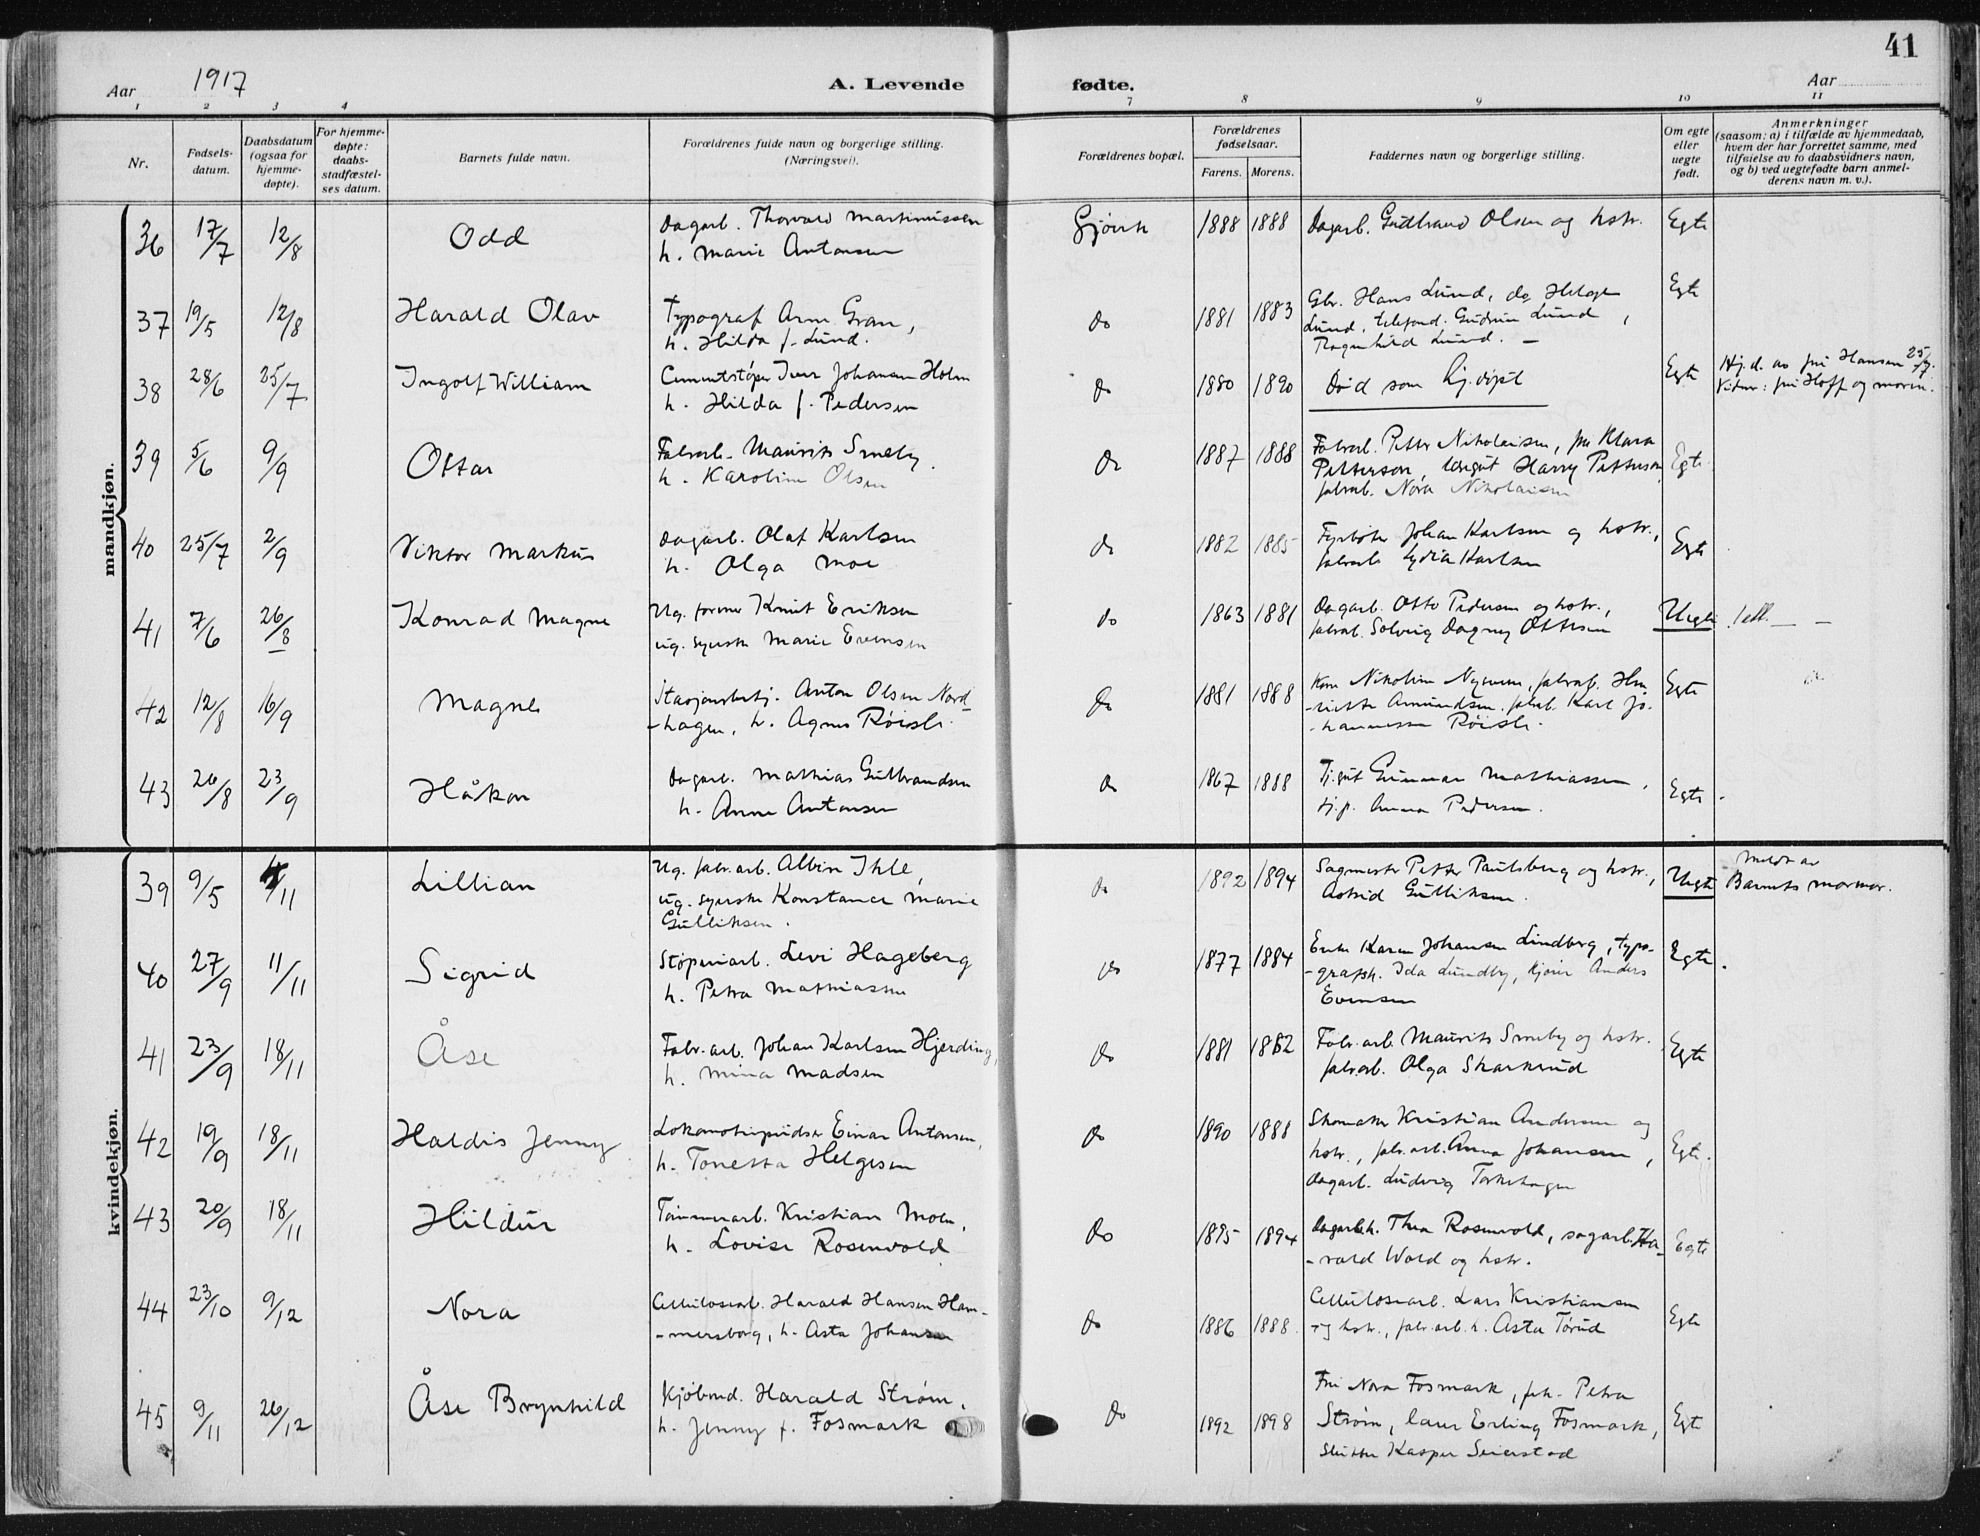 41
Aar 1917
A. Levende fødte.
Aar
1 2 3 4 7 8 9 10 11
Nr.
Fødsels-
datum.
Daabsdatum
(ogsaa for
hjemme-
døpte).
For hjemme-
døpte:
daabs-
stadfæstel-
ses datum.
Barnets fulde navn.
Forældrenes fulde navn og borgerlige stilling.
(Næringsvei).
Forældrenes bopæl.
Forældrenes
fødselsaar.
Farens. Morens.
Faddernes navn og borgerlige stilling.
Om egte
eller
uegte
født.
Anmerkninger
(saasom: a) i tilfælde av hjemmedaab,
hvem der har forrettet samme, med
tilføielse av to daabsvidners navn,
og b) ved uegtefødte barn anmel-
derens navn m. v.).
mandkjøn.
36 17/7 12/8 Odd
Dagarb. Thorvald Martinussen
h. Marie Antonsen
Gjøvik 1888 1888 Dagarb. Gudbrand Olsen og hstr. Egte
37 19/5 12/8 Harald Olav
Typograf Arne Gran,
h. Hilda f. Lund.
do 1881 1883
Gbr. Hans Lund, do Helge
Lund, telefond. Gudrun Lund,
Ragnhild Lund. —
Egte
38 28/6 25/7 Ingolf William
Cementstøper Iver Johansen Holm
h. Hilda f. Pedersen
do 1880 1890 Død som hj.døpt Egte
Hj.d. av fru Hansen 25/7.
Vidner: fru Hoff og moren.
39 5/6 9/9 Ottar
Fabrarb. Maurits Smeby.
h. Karoline Olsen
do 1887 1888
Fabrarb. Petter Nikolaisen, fru Klara
Petterson, Harry Petterson,
fabrab. Nora Nikolaisen
Egte
40 25/7 2/9 Viktor Markus
Dagarb. Olaf Karlsen
h. Olga Moe
do 1882 1885
Fyrbøter Johan Karlsen og hstr.,
fabrarb Lydia Karlsen
Egte
41 7/6 26/8 Konrad Magne
Ug. former Knut Eriksen
ug. syerske Marie Evensen
do 1863 1881
Dagarb. Otto Pedersen og hstr.,
fabrab. Solveig Dagny Ottesen
Uegte
42 12/8 16/9 Magne
Stasjonsbetj. Anton Olsen Nord-
-hagen, h. Agnes Røisli.
do 1881 1888
Kone Nikoline fabrab. Hen-
-riette Amundsen, fabrab. Karl Jo-
-hannessen Røisli.
Egte
43 26/8 23/9 Håkon
Dagarb. Mathias Gulbrandsen
h. Anne Antonsen
do 1867 1888
Tj.gut Gunnar Mathiassen,
tj.p. Anna Pedersen.
Egte
kvindekjøn.
39 9/5 4/11 Lillian
Ug. fabr.arb. Albin Ihle,
ug. syerske Konstance Marie
Gulliksen.
do 1892 1894
Sagmester Petter Paulsberg og hstr.,
Astrid Gulliksen.
Uegte
Meldt av
Barnets mormor.
40 27/9 11/11 Sigrid
Støperiarb. Levi Hageberg
h. Petra Mathiassen
do 1877 1884
Enke Karen Johansen Lindberg, typo-
-grafsk. Ida Lundby, kjører Anders
Evensen
Egte.
41 23/9 18/11 Åse
Fabr.arb. Johan Karlsen Hjerding,
h. Mina Madsen
do 1881 1882
Fabr.arb. Maurits Smeby og hstr.
fabrarb. Olga Skarkrud
Egte
42 19/9 18/11 Haldis Jenny
Lokomotivpudser Einar Antonsen,
h. Tonetta Helgesen
do 1890 1888
Skomaker Kristian Andersen og
hstr., fabr.arb. Anna Johansen,
dagarb. Ludvig Torkehagen
Egte.
43 20/9 18/11 Hildur
Tømmerarb. Kristian Moen,
h. Lovise Rosenvold
do 1895 1894
Dagarb.h. Thea Rosenvold, sagarb. Ha-
-rald Wold og hstr.
Egte
44 23/10 9/12 Nora
Cellulosearb. Harald Hansen Ham-
-mersborg, h. Asta Johansen
do 1886 1888.
Cellulosearb. Lars Kristiansen
og hstr., fabr.arb.h. Asta Tørud
Egte
45 9/11 26/12 Åse Brynhild
Kjøbmd. Harald Strøm,
h. Jenny f. Fosmark
do 1892 1898
Fru Nora Fosmark, frk. Petra
Strøm, Erling Fosmark,
Kasper Seierstad
Egte